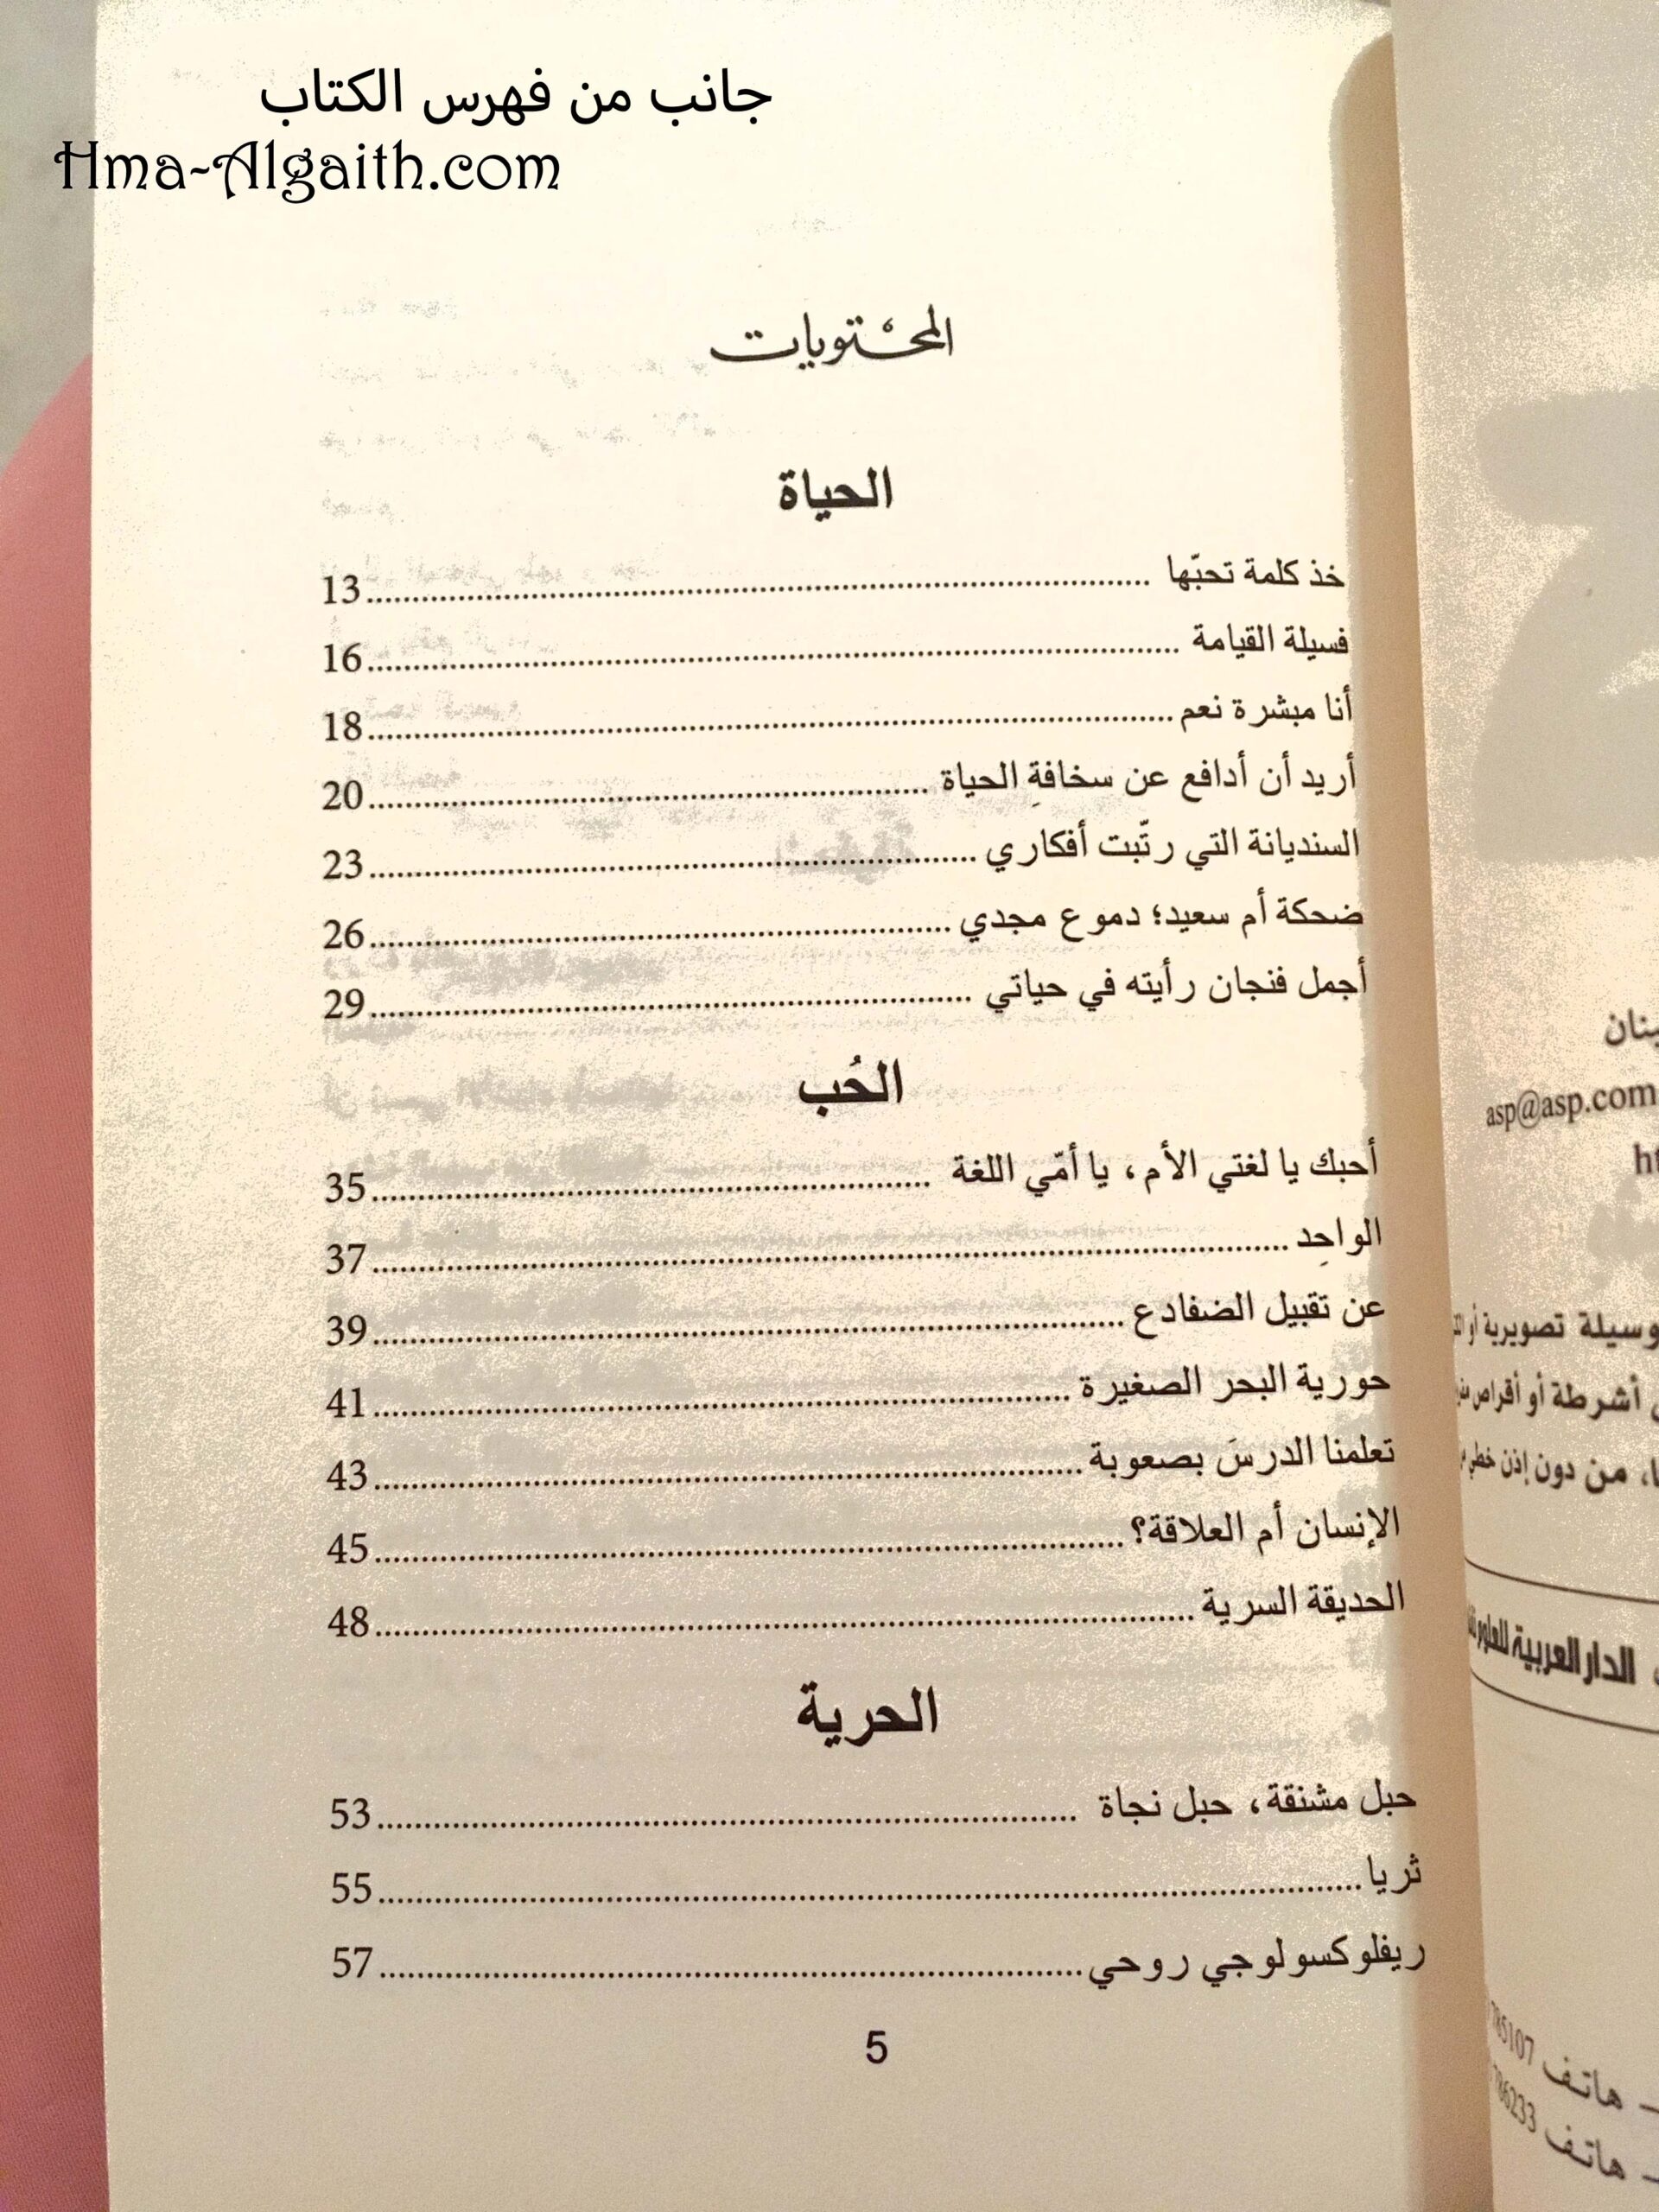 جانب من فهرس الكتاب
Hma-Algaith.com
المحْتويات
الحياة
خذ كلمة تحبّها ........ 13
فسيلة القيامة ........ 16
أنا مبشرة نعم ........ 18
أريد أن أدافع عن سخافةِ الحياة ........ 20
السنديانة التي رتّبت أفكاري ........ 23
ضحكة أم سعيد؛ دموع مجدي ........ 26
أجمل فنجان رأيته في حياتي ........ 29
الحُب
أحبك يا لغتي الأم، يا أمّي اللغة ........ 35
الواحِد ........ 37
عن تقبيل الضفادع ........ 39
حورية البحر الصغيرة ........ 41
تعلمنا الدرسَ بصعوبة ........ 43
الإنسان أم العلاقة؟ ........ 45
الحديقة السرية ........ 48
الحرية
حبل مشنقة، حبل نجاة ........ 53
ثريا ........ 55
ريفلوكسولوجي روحي ........ 57
5
asp@asp.com
وسيلة تصويرية أو
أشرطة أو أقراص
من دون إذن خطي
الدار العربية للعلوم
هاتف 785107
هاتف 786233